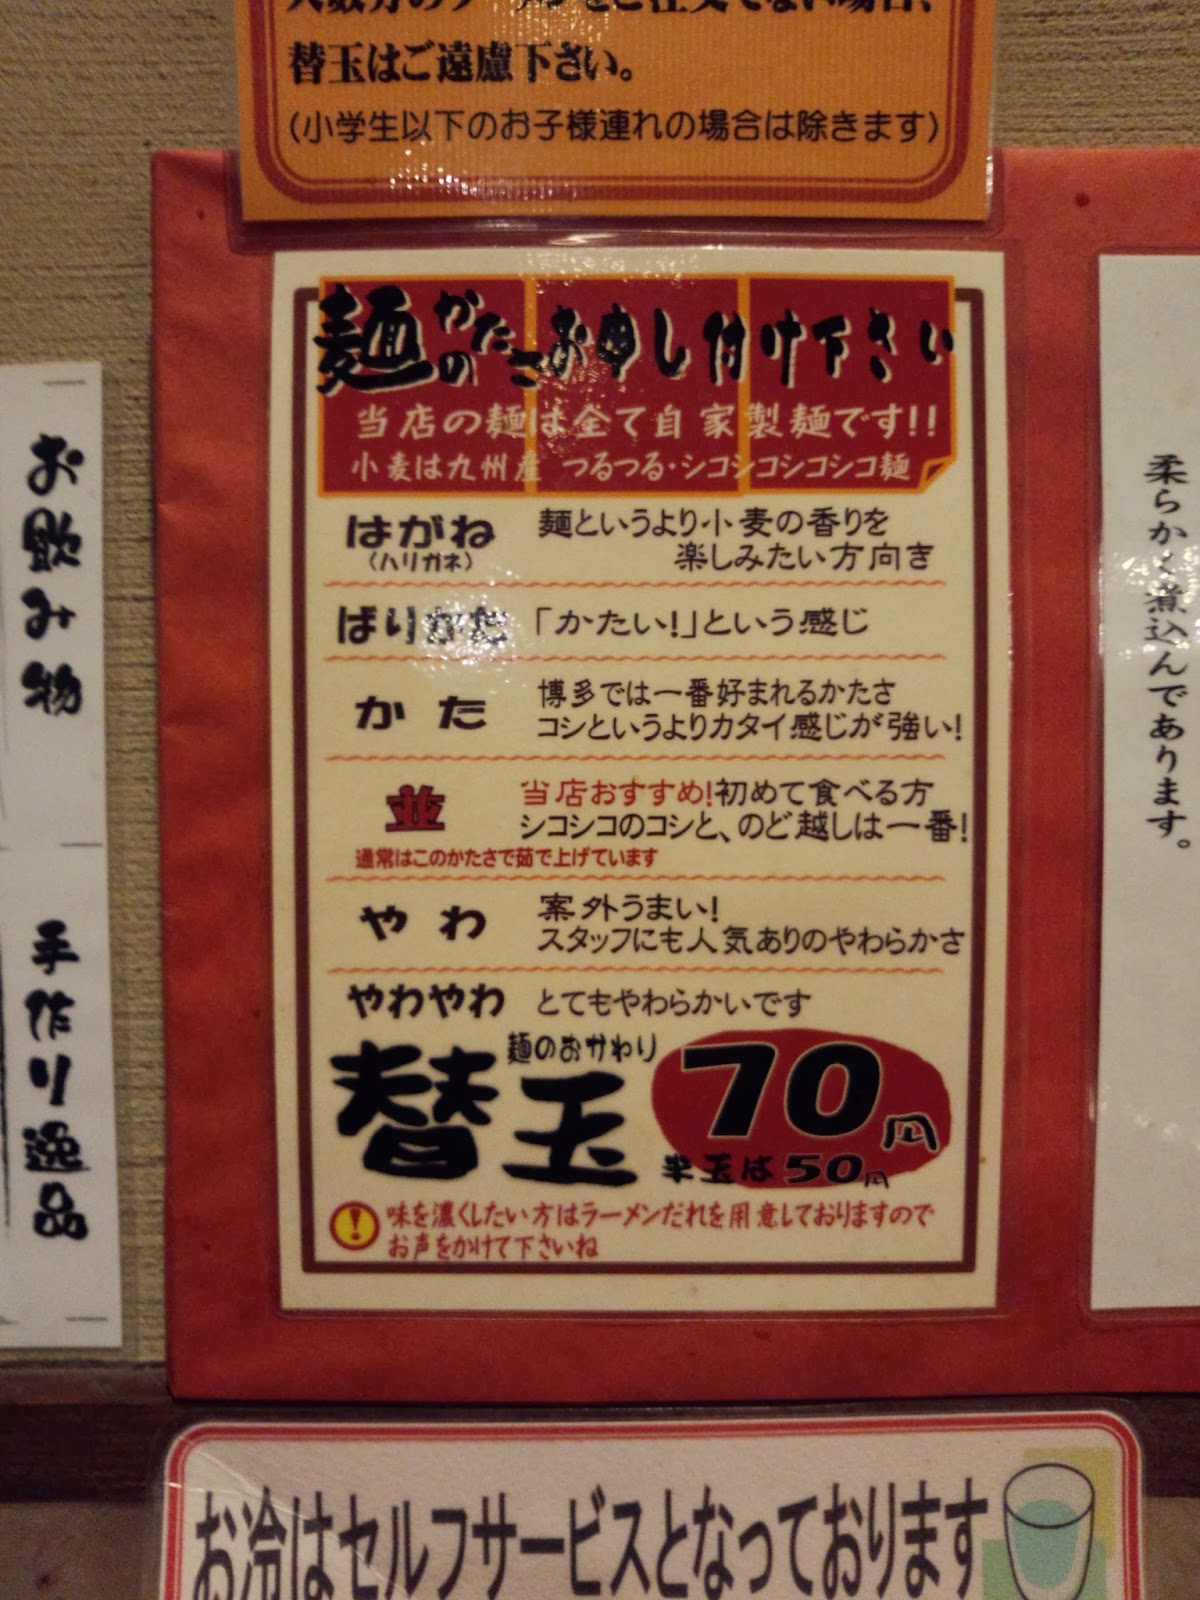 替玉はご遠慮下さい。
(小学生以下のお子様連れの場合は除きます)
麺のかたさお申し付け下さい
当店の麺は全て自家製麺です!!
小麦は九州産 つるつる・シコシコシコシコ麺
はがね
(ハリガネ)
麺というより小麦の香りを
楽しみたい方向き
ばりかた
「かたい!」という感じ
かた
博多では一番好まれるかたさ
コシというよりカタイ感じが強い!
並
当店おすすめ!初めて食べる方
シコシコのコシと、のど越しは一番!
通常はこのかたさで茹で上げています
やわ
案外うまい!
スタッフにも人気ありのやわらかさ
やわやわ
とてもやわらかいです
麺のおかわり
替玉
70円
半玉は50円
味を濃くしたい方はラーメンだれを用意しておりますので
お声をかけて下さいね
お飲み物
手作り逸品
柔らかく煮込んであります。
お冷はセルフサービスとなっております